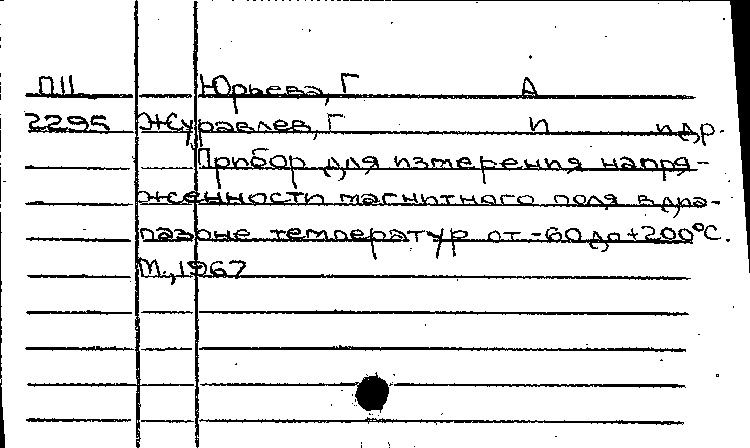 П11 Юрьева, Г А
2295 Журавлев, Г П и др.
Прибор для измерения напря-
женности магнитного поля в диа-
пазоне температур от -60 до +200°С.
М., 1967